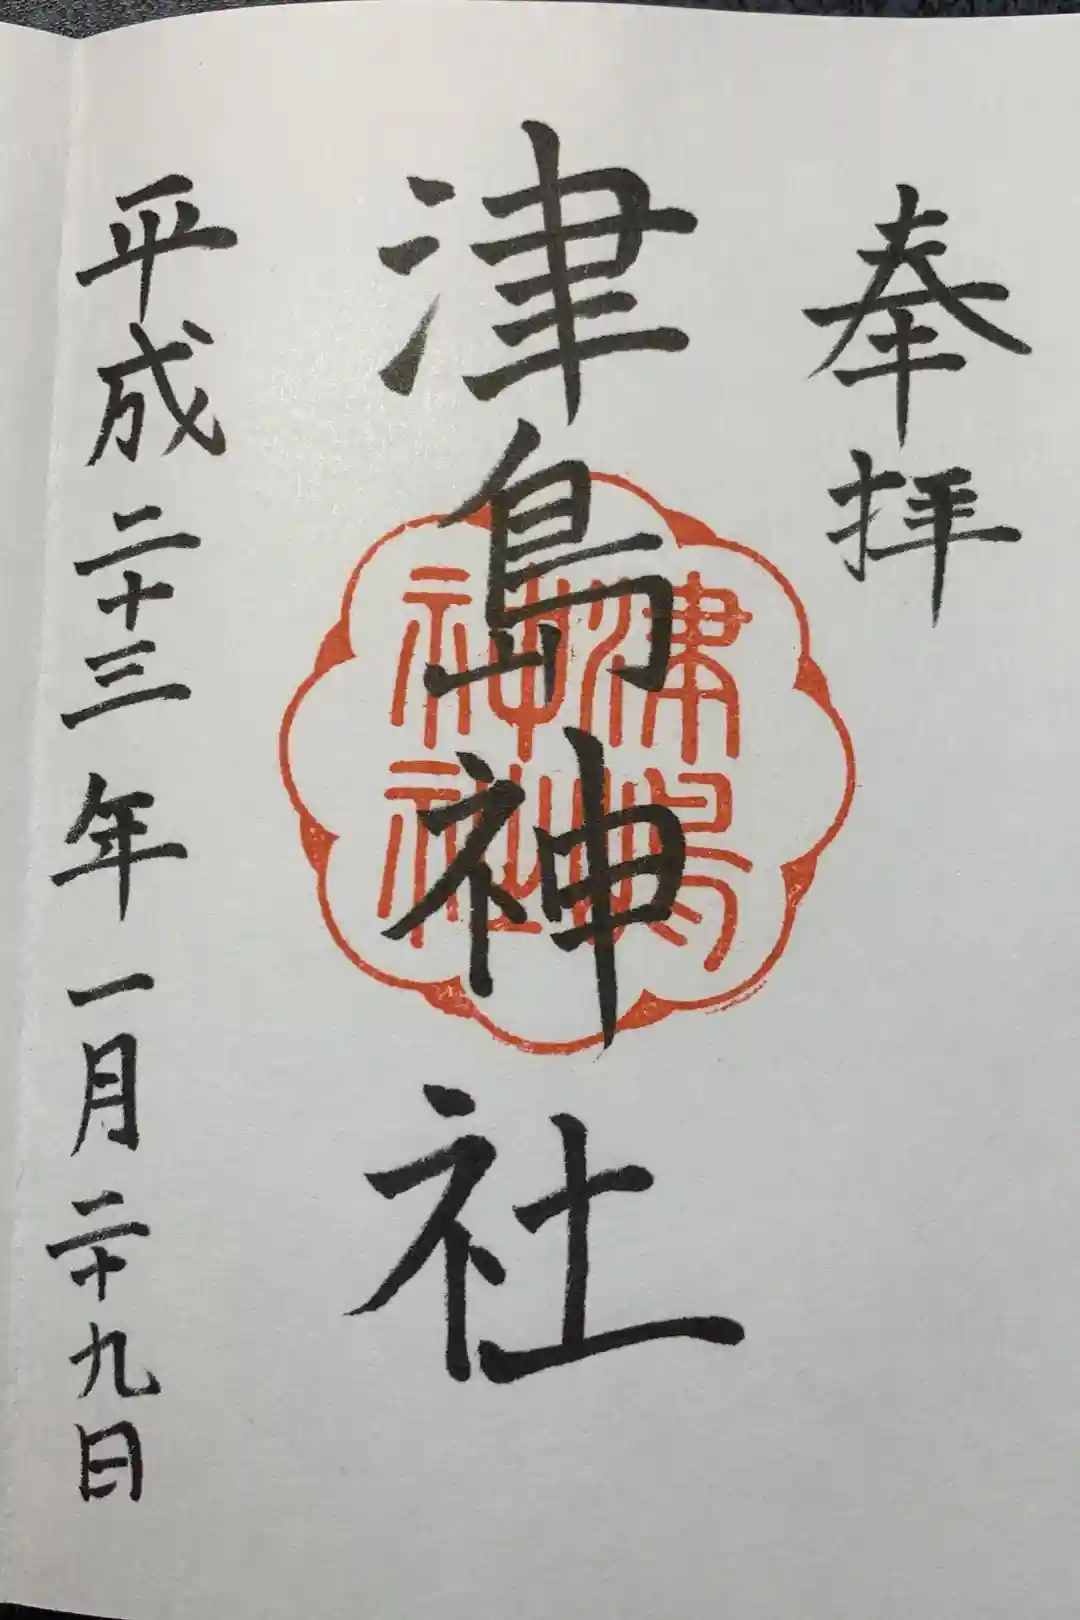 奉拝
津島神社
津嶋
神社
平成二十三年一月二十九日